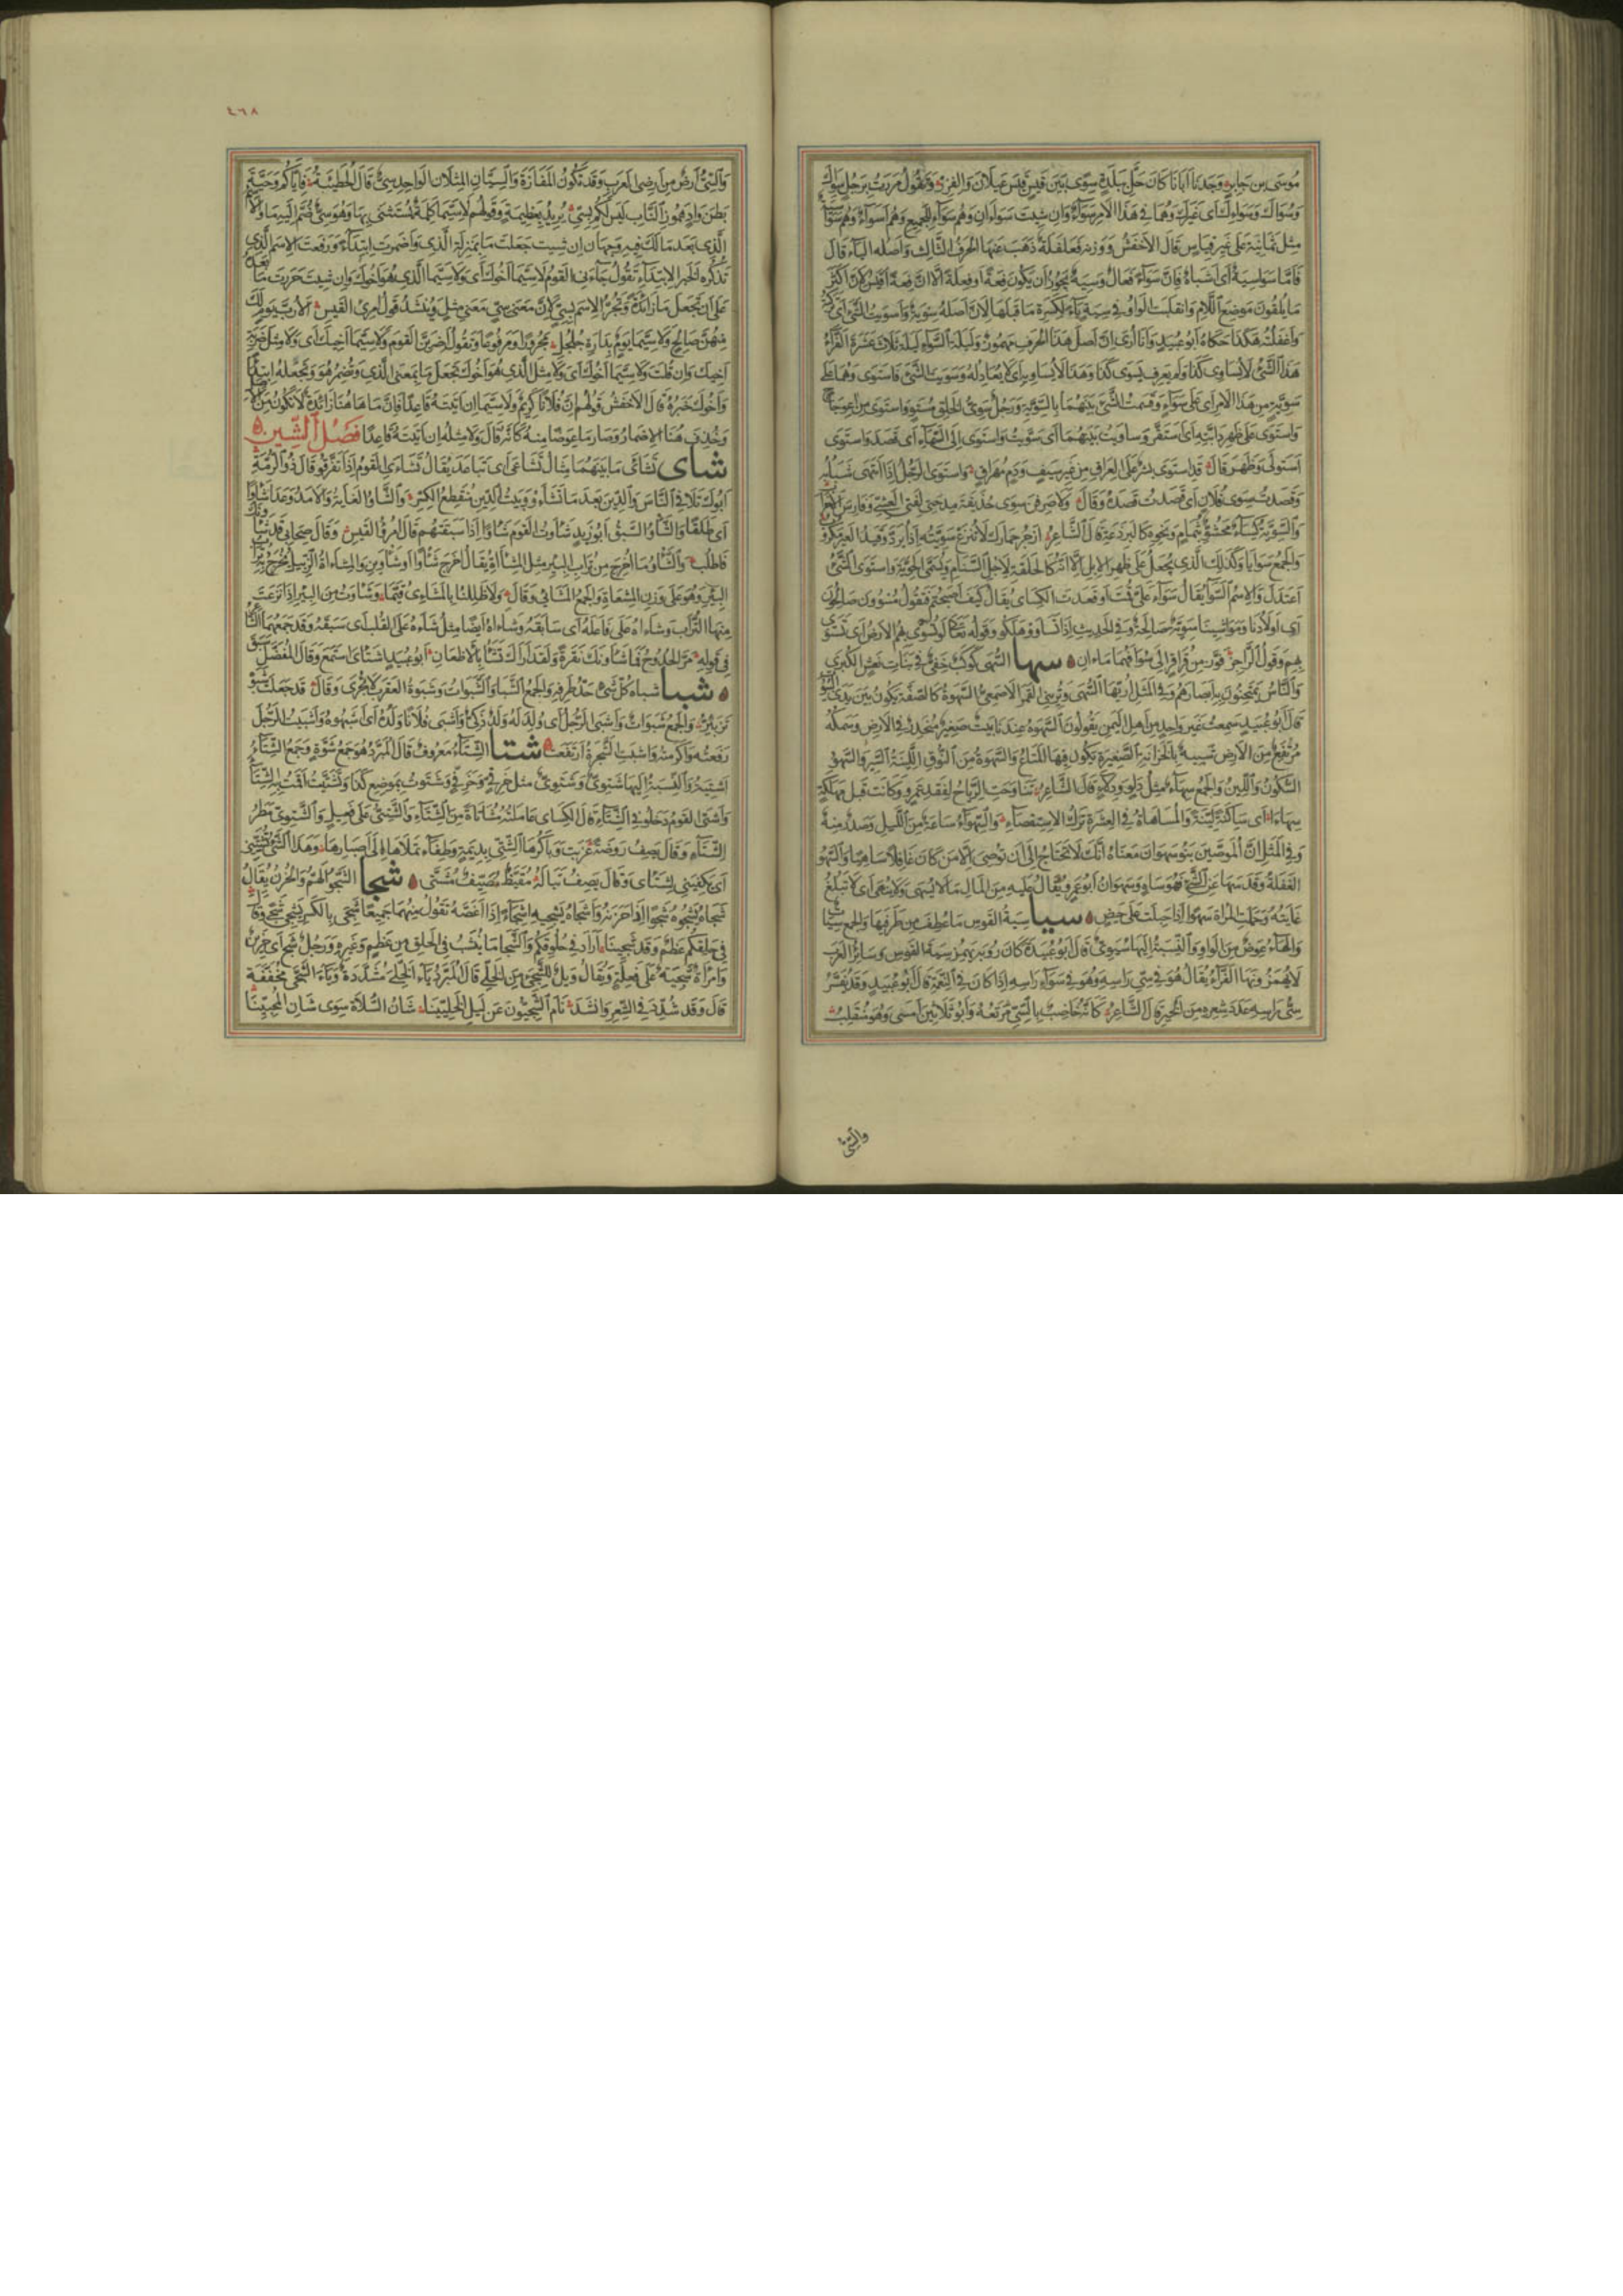 موسى بن جابر وجدنا ابانا كان حل ببلدة سوى بين قيس قيس عيلان والفزر وتقول مررت برجل سواك
وسواك وسوائك اى غيرك وهما فى هذا الامر سواء وان شيت سواءان وهم سواء للجميع وهم اسواء وهم سواسية
مثل ثمانية على غير قياس قال الاخفش ووزنه فعلفلة ذهب عنها الحرف الثالث واصله الياء قال
فاما سواسية اى اشباه فان سواء فعال وسية يجوز ان يكون فعة او فعلة الا ان فعة اقيس لان اكثر
ما يلقون موضع اللام وانقلبت الواو فى سية ياء لكسرة ما قبلها لان اصله سوية واسويت الشئ اى تركته
واغفلته هكذا حكاه ابو عبيد وانا ارى ان اصل هذا الحرف مهموز وليلة السواء ليلة ثلاث عشرة الفراء
هذا الشئ لا يساوى كذا ولم يعرف يسوى كذا وهذا لا يساويه اى لا يعادله وسويت الشئ فاستوى وهما على
سوية من هذا الامر اى على سواء وقسمت الشئ بينهما بالسوية ورجل سوى الخلق مستو واستوى من اعوجاج
واستوى على ظهر دابته اى استقر وساويت بينهما اى سويت واستوى الى السماء اى قصد واستوى
استولى وظهر قال قد استوى بشر على العراق من غير سيف ودم مهراق واستوى الرجل اذا انتهى شبابه
وقصدت سوى فلان اى قصدت قصده وقال ولاصرفن سوى حذيفة مدحتى لفتى العشى وفارس الاجراف
والسوية كساء محشو بثمام ونحوه كالبرذعة قال الشاعر ازجر حمارك لا تنزع سويته اذا يرد وقيد العير مكروب
والجمع سوايا وكذلك الذى يجعل على ظهر الابل الا انه كالحلقة لاجل السنام ويسمى الحوية واستوى الشئ
اعتدل والاسم السواء يقال سواء على قمت او قعدت الكساى يقال كيف اصبحتم فيقول مسوون صالحون
اى اولادنا ومواشينا سوية صالحة وفى الحديث اذا تساووا هلكوا وقوله تعالى لو تسوى بهم الارض اى تستوى
بهم وقول الراجز فوز من قراقر الى سوى فهما ماءان سها السهى كوكب خفى فى بنات نعش الكبرى
والناس يمتحنون به ابصارهم وفى المثل اريها السهى وترينى القمر الاصمعى السهوة كالصفة تكون بين يدى البيوت
قال ابو عبيد سمعت غير واحد من اهل اليمن يقولون السهوة عندنا بيت صغير منحدر فى الارض وسمكه
مرتفع من الارض شبيه بالخزانة الصغيرة يكون فيها المتاع والسهوة من النوق اللينة السير والسهو
السكون واللين والجمع سهاء مثل دلو ودلاء قال الشاعر تناوحت الرياح لفقد عمرو وكانت قبل مهلكه
سهاءا اى ساكنة لينة والمساهاة فى العشرة ترك الاستقصاء والسهواء ساعة من الليل وصدر منه
وفى المثل ان الموصين بنو سهوان معناه انك لا تحتاج الى ان توصى الا من كان غافلا ساهيا والسهو
الغفلة وقد سها عن الشئ فهو ساه وسهوان ابو عمرو يقال عليه من المال ما لا يسهى ولا ينهى اى لا تبلغ
غايته وحملت المراة سهوا اذا حبلت على حيض سيا سية القوس ما عطف من طرفيها والجمع سيات
والهاء عوض من الواو والنسبة اليها سيوى قال ابو عبيدة كان رؤبة يهمز سية القوس وسائر العرب
لا يهمزونها الفراء يقال هو فى سى راسه وهو فى سواء راسه اذا كان فى النعمة قال ابو عبيد وقد يفسر
سى راسه عدد شعره من الخير قال الشاعر كانه خاضب بالسى مرتعه ابو ثلاثين امسى وهو منقلب
والسى
٤٦٨
والسى ارض من اراضى العرب وقد تكون المفازة والسيان المثلان الواحد سى قال الحطيئة فاياكم وحية
بطن واد هموز الناب ليس لكم بسى يريد بعظيمة وقولهم لا سيما كلمة يستثنى بها وهو سى ضم اليه ما والاسم
الذى بعد ما لك فيه وجهان ان شيت جعلت ما بمنزلة الذى واضمرت ابتداء ورفعت الاسم الذى
تذكره لخبر الابتداء تقول جاءنى القوم لا سيما اخوك اى ولا سيما الذى هو اخوك وان شيت جررت ما بعده
على ان تجعل ما زائدة وتجر الاسم بسى لان معنى سى معنى مثل وينشد قول امرئ القيس الا رب يوم لك
منهن صالح ولا سيما يوم بدارة جلجل مجرورا ومرفوعا وتقول اضربن القوم ولا سيما اخيك اى ولا مثل ضربة
اخيك وان قلت ولا سيما اخوك اى ولا مثل الذى هو اخوك تجعل ما بمعنى الذى وتضمر هو وتجعله ابتداء
واخوك خبره قال الاخفش قولهم ان فلانا كريم ولا سيما ان اتيته قاعدا فان ما هاهنا زائدة لا تكون من الاصل
وحذف هنا الاضمار وصار ما عوضا منه كانه قال ولا مثله ان اتيته قاعدا فصل الشين
شاى تشاءى ما بينهما مثال تشاعى اى تباعد يقال تشاءى القوم اذا تفرقوا قال ذو الرمة
ابوك تلافى الناس والدين بعد ما تشاءوا وبيت الدين منقطع الكسر والشاو الغاية والامد وعدا شاوا
اى طلقا والشاو السبق ابو زيد شاوت القوم شاوا اذا سبقتهم قال امرؤ القيس وقال صحابى قد شاونك
فاطلب والشاو ما اخرج من تراب البير مثل المشاة يقال اخرج شاوا او شاوين والمشاءة الزبيل يخرج به تراب
البير وهو على وزن المشعاة والجمع المشائى وقال ولا ظللنا بالمشاءى قيما وشاوت من البير اذا نزعت
منها التراب وشاءاه على فاعله اى سابقه وشاءاه ايضا مثل شآه على القلب اى سبقه وقد جمعهما الشاعر
فى قوله مر الحدوج فما شاونك نقرة ولقد اراك تشاء بالاظعان ابو عبيد اشتاى استمع وقال المفضل سبق
شبا شباة كل شئ حد طرفه والجمع الشبا والشبوات وشبوة العقرب لا تجرى وقال قد جعلت شبوة
تزبئر والجمع شبوات واشبى الرجل اى ولد له ولد ذكى واشبى فلانا ولده اى اشبهوه واشبيت الرجل
رفعته واكرمته واشبت الشجرة ارتفعت شتا الشتاء معروف قال المبرد هو جمع شتوة وجمع الشتاء
اشتية والنسبة اليها شتوى وشتوى مثل خرفى وخرفى وشتوت بموضع كذا وتشتيت اقمت به الشتاء
واشتى القوم دخلوا فى الشتاء قال الكساى عاملته مشاتاة من الشتاء والشتى على فعيل والشتوى مطر
الشتاء وقال يصف روضة عزبت وباكرها الشتى بديمة وطفاء تملاها الى اصبارها وهذا الشئ يشتينى
اى يكفينى لشتاى وقال يصف بتا له مقيظ مصيف مشتى شجا الشجو الهم والحزن يقال
شجاه يشجوه شجوا اذا حزنه واشجاه يشجيه اشجاء اذا اغصه تقول منهما جميعا شجى بالكسر يشجى شجى وقال
فى حلقكم عظم وقد شجينا اراد فى حلوقكم والشجا ما ينشب فى الحلق من عظم وغيره ورجل شج اى حزين
وامراة شجية على فعلة ويقال ويل للشجى من الخلى قال المبرد ياء الخلى مشددة وياء الشجى مخففة
قال وقد شدد فى الشعر وانشد نام الشجيون عن ليل الخليينا شان السلاة سوى شان المحبينا